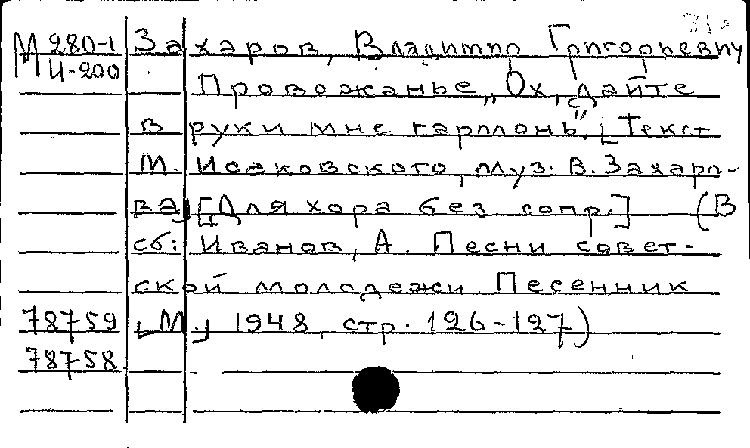 М 280-1 Захаров, Владимир Григорьевич
И-200
Провожанье „Ох, дайте
в руки мне гармонь". [Текст
М. Исаковского, муз. В. Захаро-
ва] [Для хора без сопр.] (В
сб: Иванов, А. Песни совет-
ской молодежи Песенник
78759 [М.] 1948, стр. 126-127)
78758